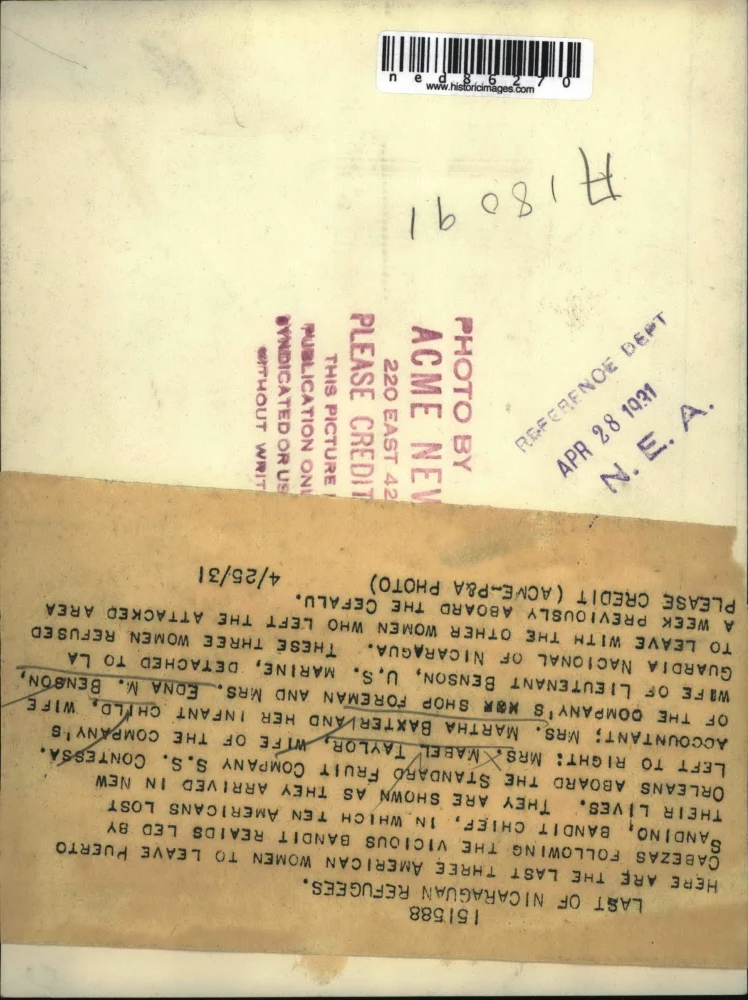 ned86270
www.historicimages.com
A18091
PHOTO BY
ACME NEW
220 EAST 42
PLEASE CREDIT
THIS PICTURE
PUBLICATION ONL
SYNDICATED OR US
WITHOUT WRIT
REFERENCE DEPT
APR 28 1931
N. E. A.
151588
LAST OF NICARAGUAN REFUGEES.
HERE ARE THE LAST THREE AMERICAN WOMEN TO LEAVE PUERTO
CABEZAS FOLLOWING THE VICIOUS BANDIT REAIDS LED BY
SANDINO, BANDIT CHIEF, IN WHICH TEN AMERICANS LOST
THEIR LIVES. THEY ARE SHOWN AS THEY ARRIVED IN NEW
ORLEANS ABOARD THE STANDARD FRUIT COMPANY S.S. CONTESSA.
LEFT TO RIGHT: MRS. MABEL TAYLOR, WIFE OF THE COMPANY'S
ACCOUNTANT; MRS. MARTHA BAXTER AND HER INFANT CHILD, WIFE
OF THE COMPANY'S SHOP FOREMAN AND MRS. EDNA M. BENSON,
WIFE OF LIEUTENANT BENSON, U.S. MARINE, DETACHED TO LA
GUARDIA NACIONAL OF NICARAGUA. THESE THREE WOMEN REFUSED
TO LEAVE WITH THE OTHER WOMEN WHO LEFT THE ATTACKED AREA
A WEEK PREVIOUSLY ABOARD THE CEFALU.
PLEASE CREDIT (ACME-P&A PHOTO) 4/25/31